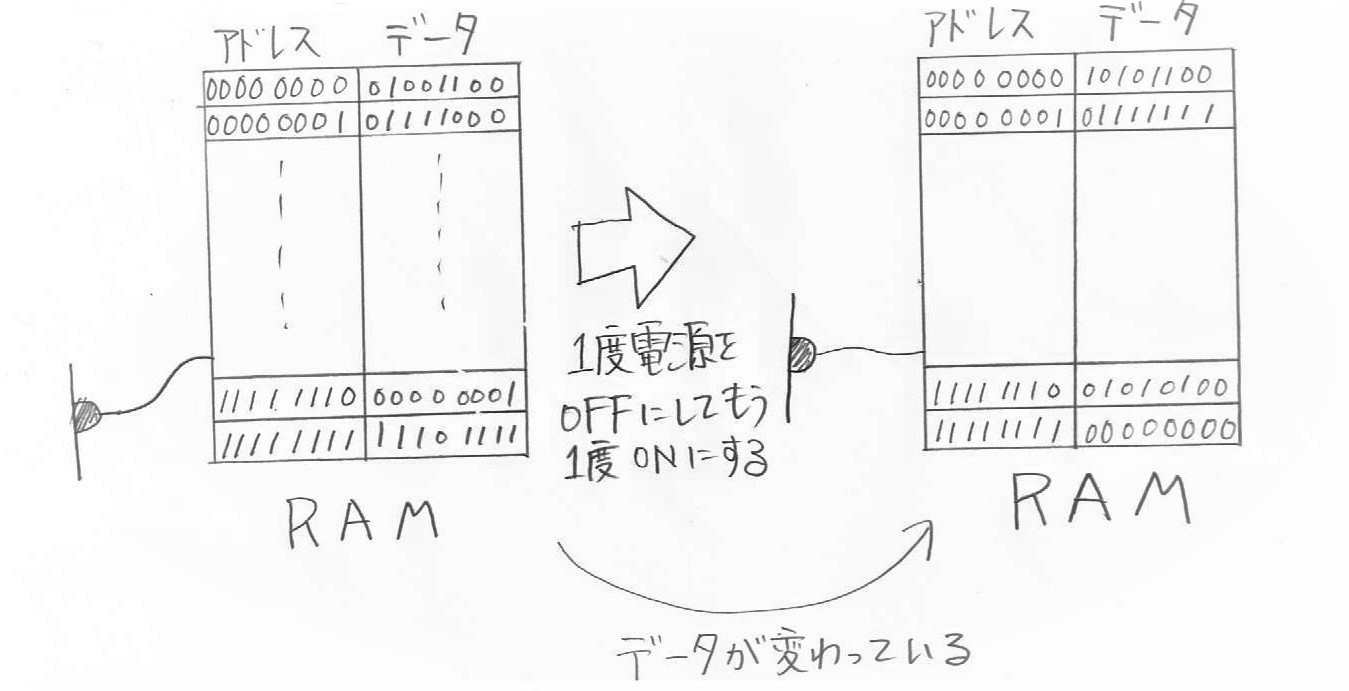 アドレス データ
0000 0000 01001100
0000 0001 01111000
1111 1110 0000 0001
11111111 1110 1111
RAM
1度電源を
OFFにしてもう
1度ONにする
アドレス データ
0000 0000 10101100
0000 0001 01111111
1111 1110 01010100
11111111 00000000
RAM
データが変わっている